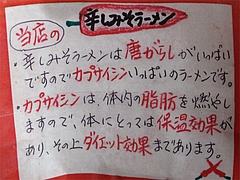 辛しみそラーメン
当店の
・辛しみそラーメンは唐がらしがいっぱい
ですのでカプサイシンいっぱいのラーメンです。
・カプサイシンは、体内の脂肪を燃やし
ますので、体にとっては保温効果が
あり、その上ダイエット効果まであります。